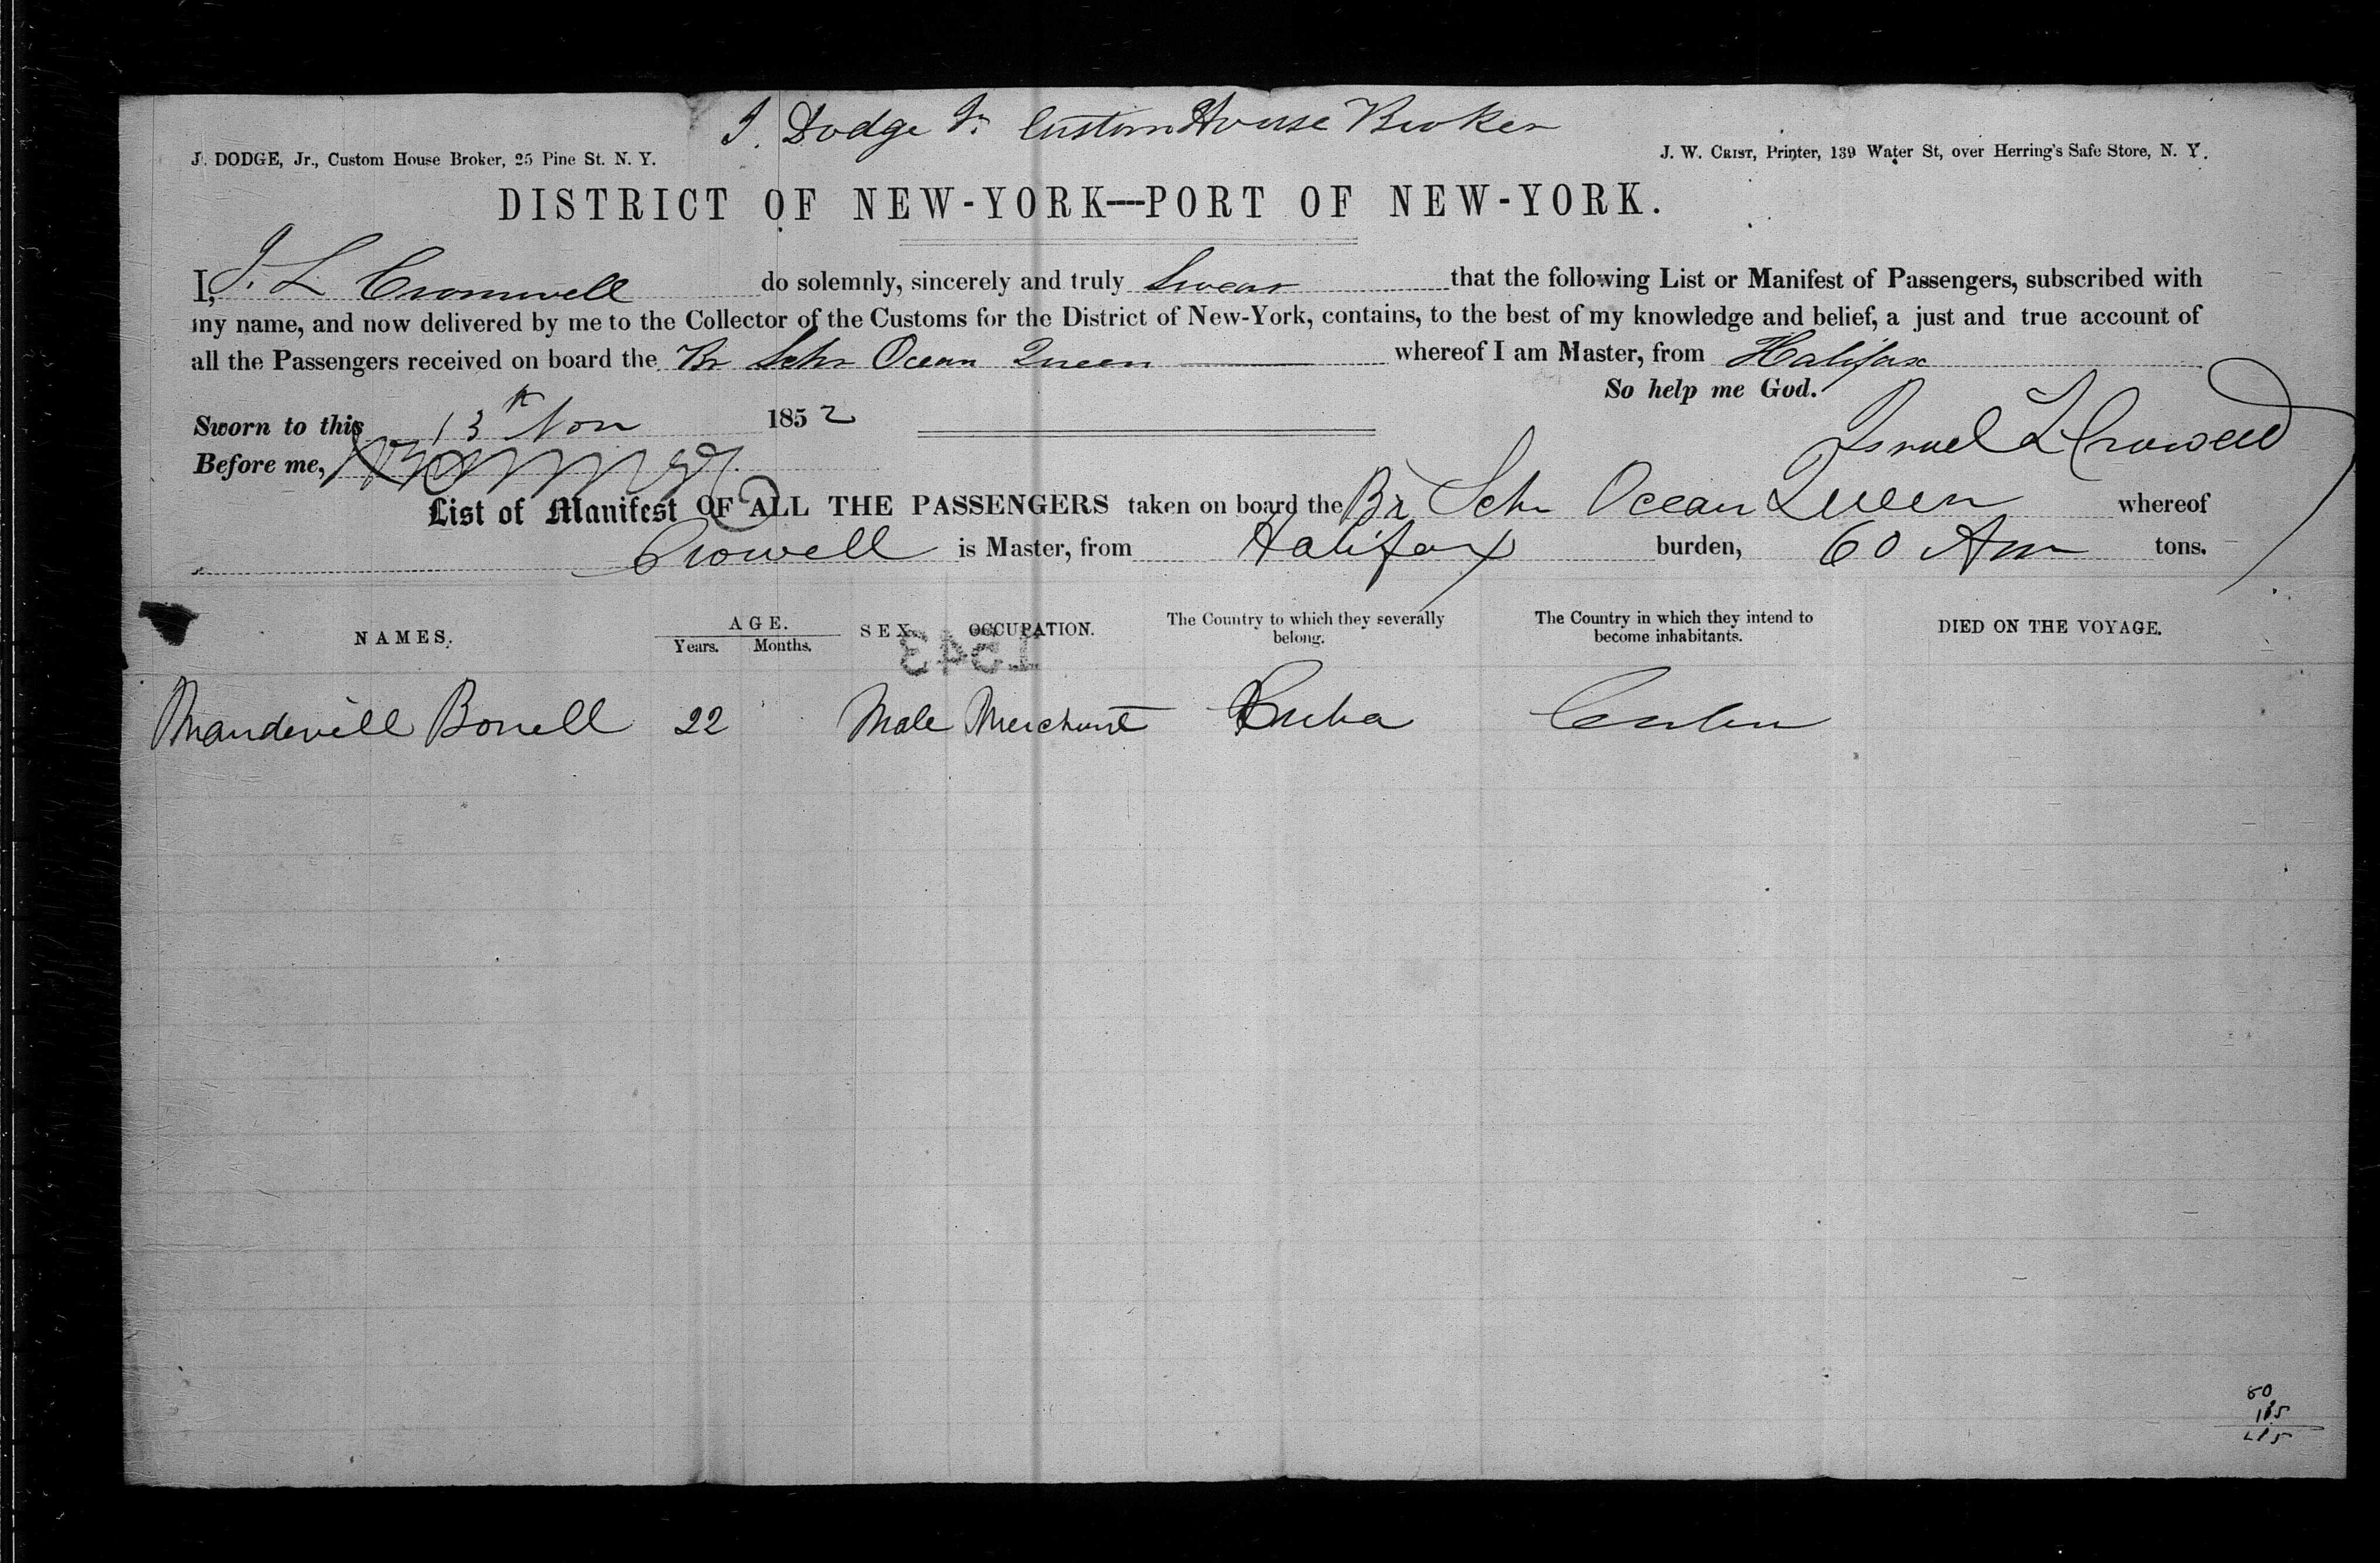 J. Dodge Jr. Custom House Broker
J. DODGE, Jr., Custom House Broker, 25 Pine St. N. Y.
J. W. CRIST, Printer, 139 Water St, over Herring's Safe Store, N. Y.
DISTRICT OF NEW-YORK—PORT OF NEW-YORK.
I, I. L Cromwell do solemnly, sincerely and truly Swear that the following List or Manifest of Passengers, subscribed with
my name, and now delivered by me to the Collector of the Customs for the District of New-York, contains, to the best of my knowledge and belief, a just and true account of
all the Passengers received on board the Br Schr Ocean Queen whereof I am Master, from Halifax
So help me God.
Sworn to this 13th Nov 1852
Israel L Crowell
Before me,
List of Manifest OF ALL THE PASSENGERS taken on board the Br Schr Ocean Queen whereof
Crowell is Master, from Halifax burden, 60 tons.
NAMES. AGE. SEX. OCCUPATION. The Country to which they severally belong. The Country in which they intend to become inhabitants. DIED ON THE VOYAGE.
Years. Months.
1343
Mandevill Bonell 22 Male Merchant Cuba Cuba